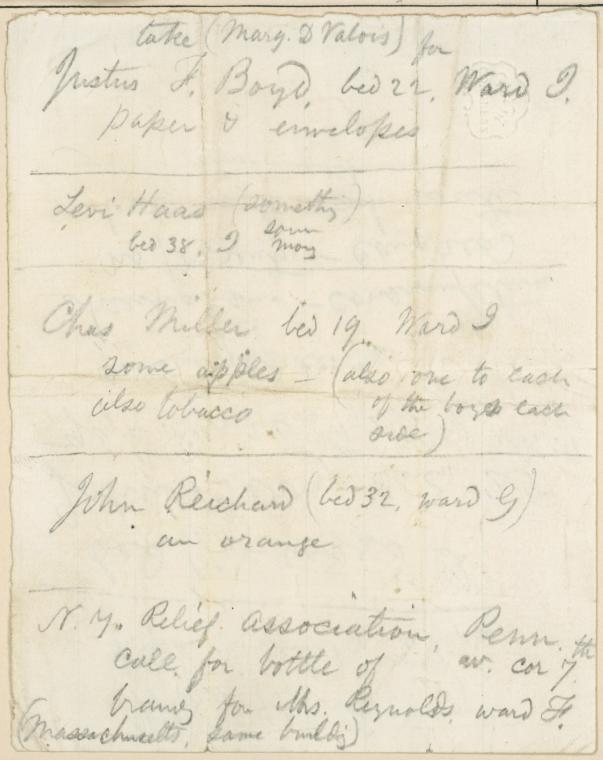 take (Marg. D Valois) for
Justus F. Boyd, bed 22, Ward I.
paper & envelopes
Levi Haas (something)
bed 38, I
Chas Miller bed 19 Ward I
some apples – (also one to each
also tobacco of the boys each
side)
John Reichard (bed 32, ward G)
an orange
N. Y. Relief Association, Penn.
call for bottle of av. cor 7th
brandy for Mrs. Reynolds, ward F.
(Massachusetts, same building)